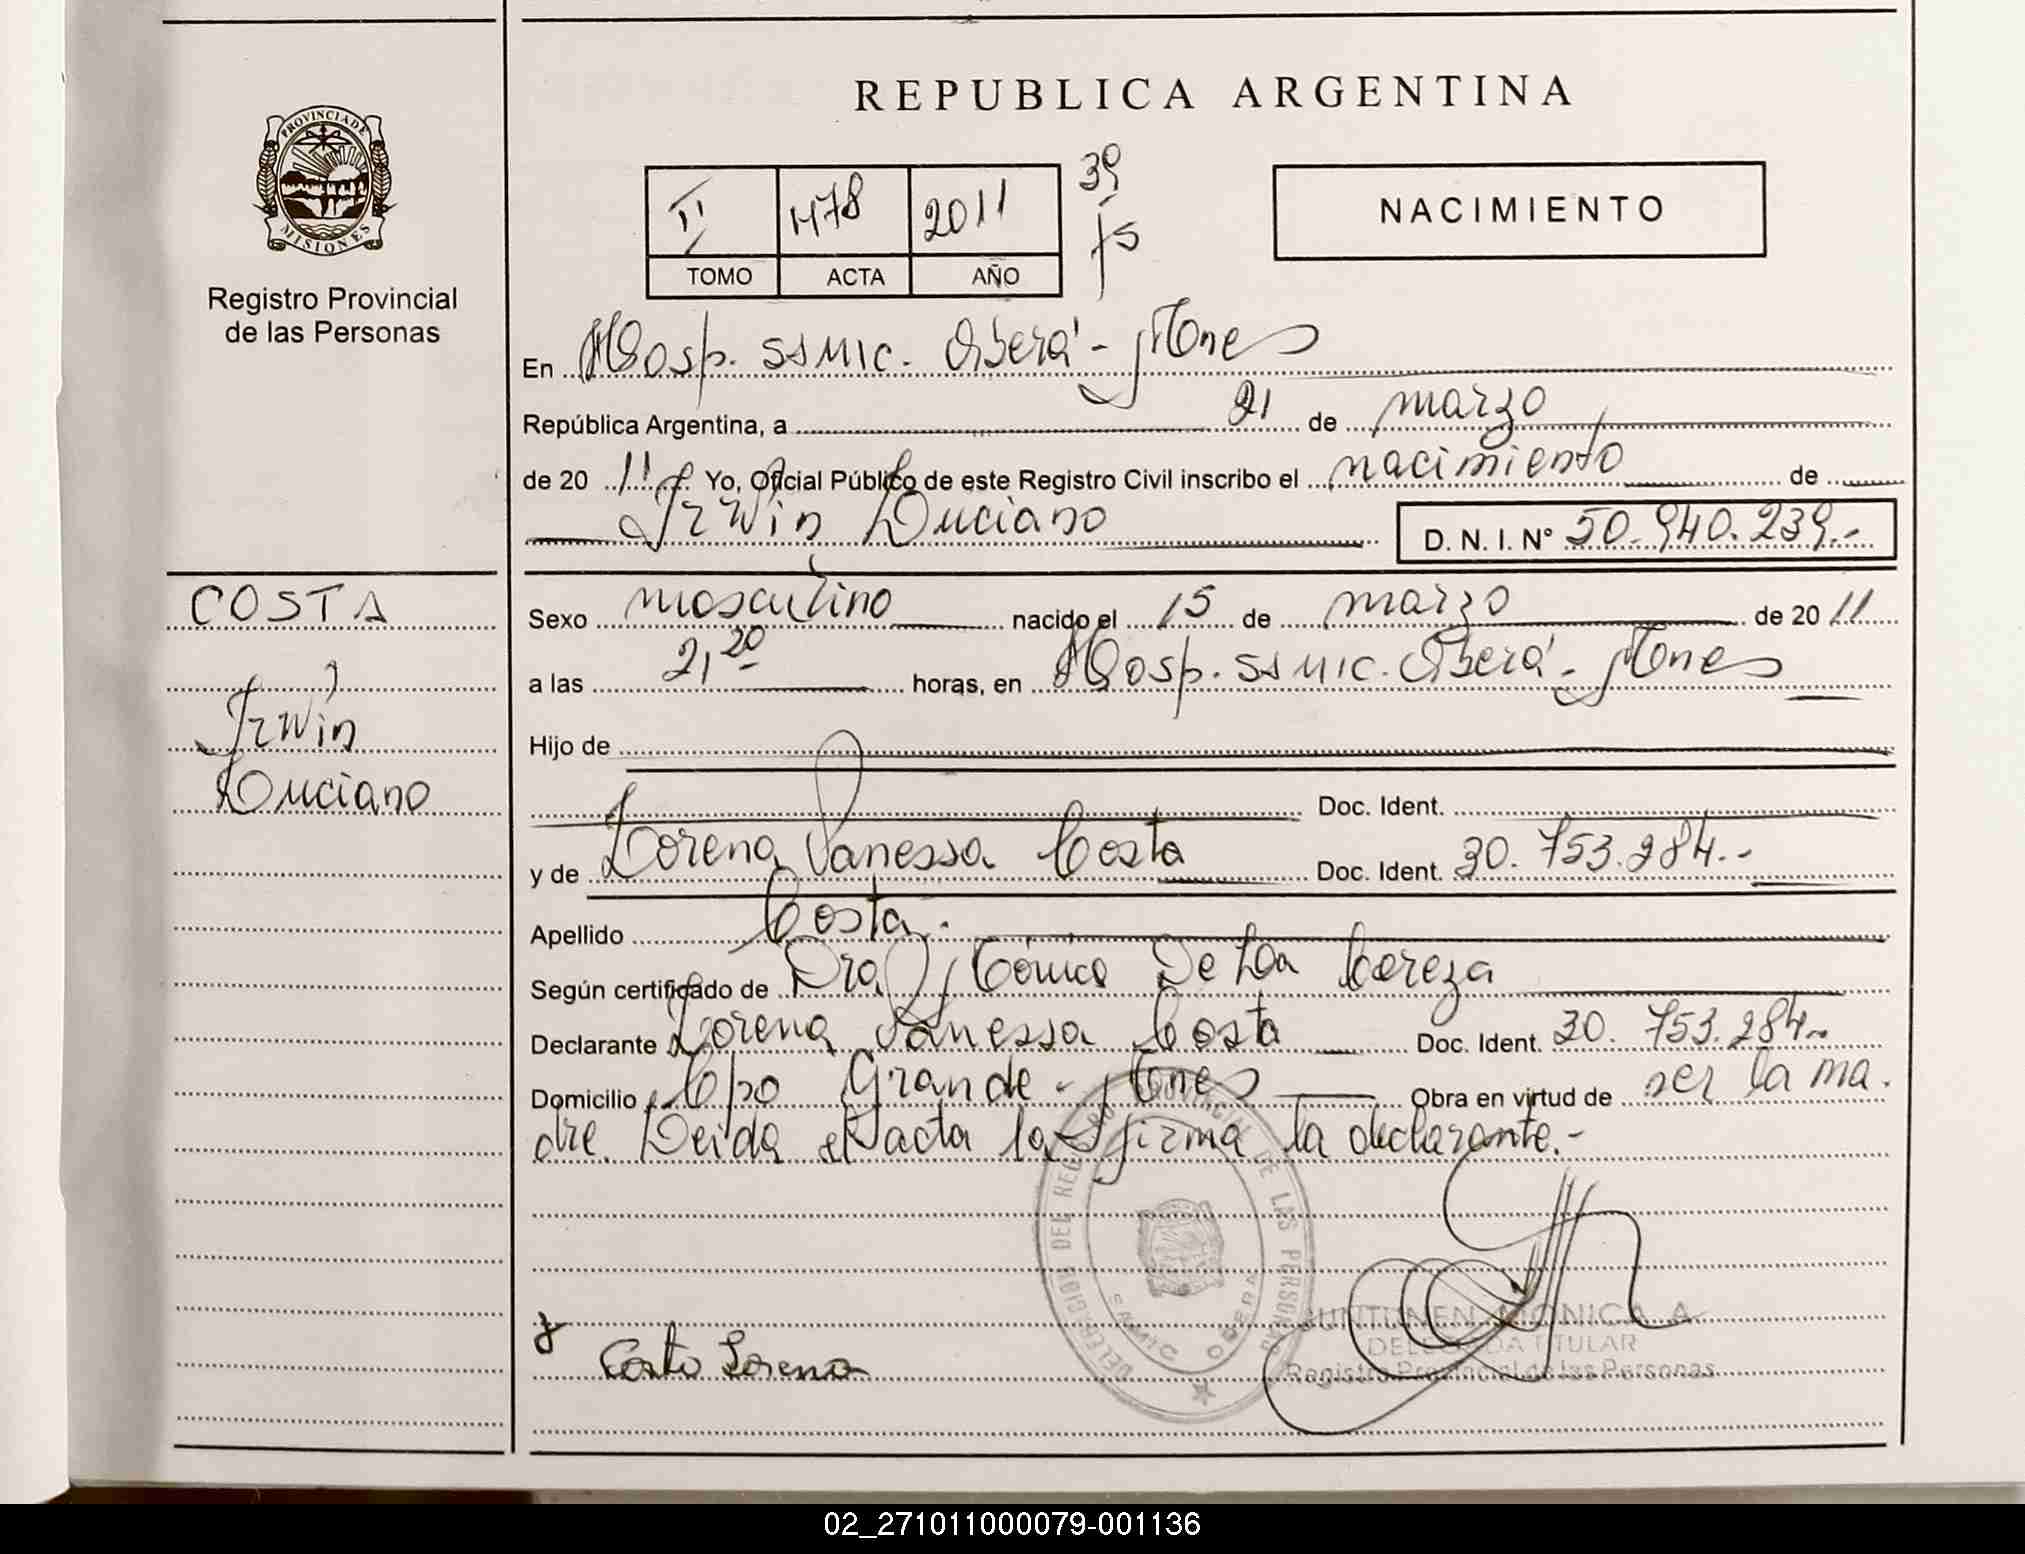 REPUBLICA ARGENTINA
PROVINCIA DE MISIONES
Registro Provincial
de las Personas
II 1478 2011 39
TOMO ACTA AÑO fs
NACIMIENTO
En Hosp. SSMIC. Oberá - Mnes
República Argentina, a 21 de marzo
de 20 11 Yo, Oficial Público de este Registro Civil inscribo el nacimiento de
Irwin Luciano D. N. I. N° 50.940.239.-
COSTA
Irwin
Luciano
Sexo masculino nacido el 15 de marzo de 20 11
a las 2,20 horas, en Hosp. SSMIC. Oberá - Mnes
Hijo de
Doc. Ident.
y de Lorena Vanessa Costa Doc. Ident. 30.753.284.-
Apellido Costa.
Según certificado de Dra. Mónica De La
Declarante Lorena Vanessa Costa Doc. Ident. 30.753.284.-
Domicilio Cpo Grande - Mnes Obra en virtud de ser la ma.
dre. Leida el acta la firma la declarante.-
DELEGACION DEL REGISTRO PROVINCIAL DE LAS PERSONAS
Costa Lorena
MONICA A
DELEGADA TITULAR
Registro Provincial de las Personas
02_271011000079-001136